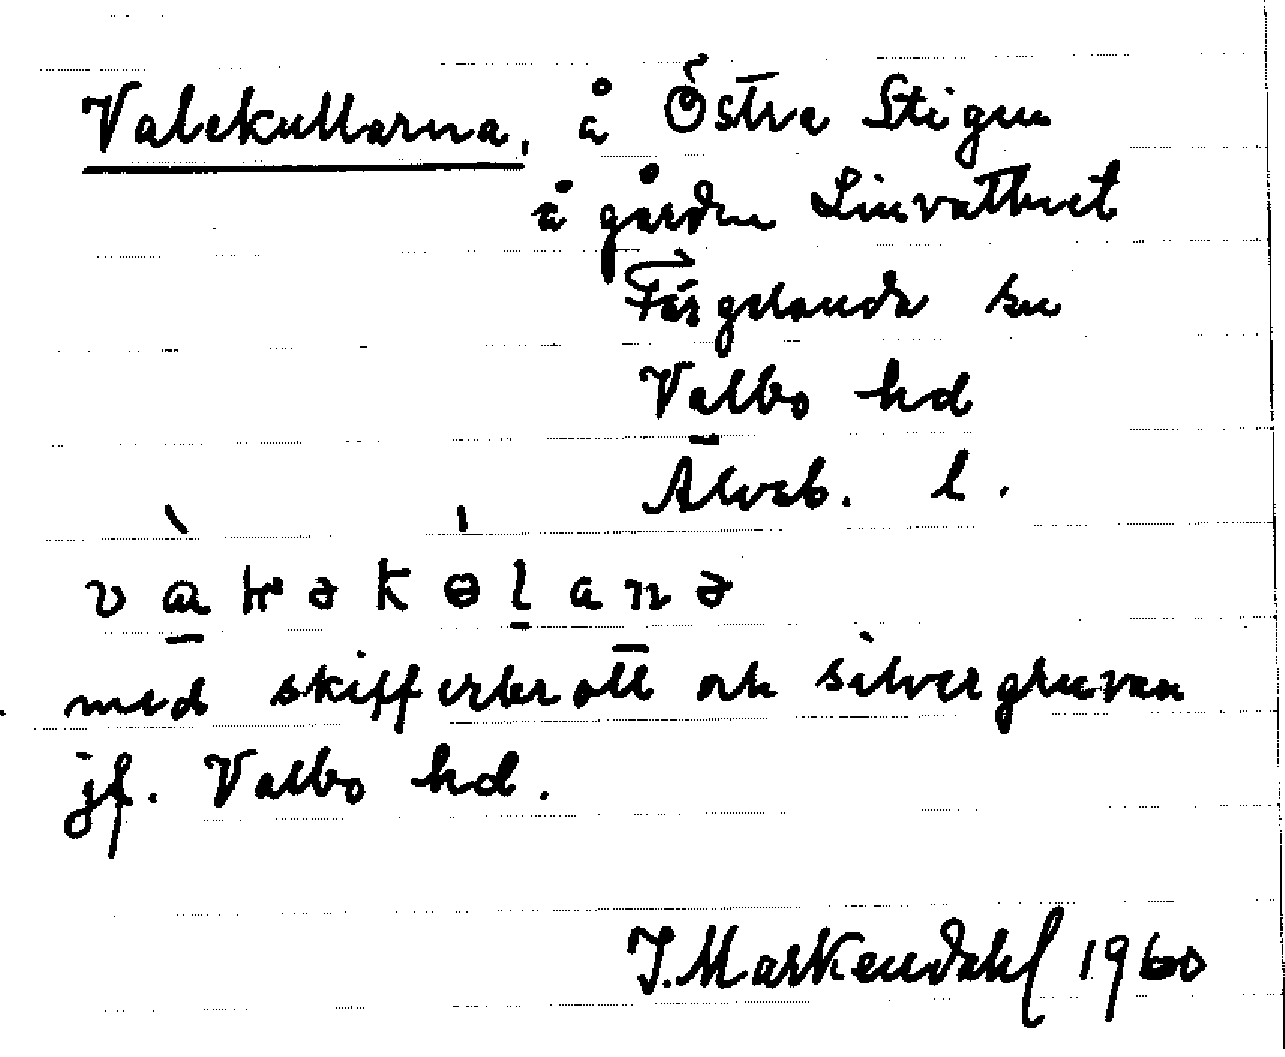 Valekullarna, å Östra Stigen
å gården Livvattnet
Färgelanda sn
Valbo hd
Älvsb. l.
med skifferbrott och silvergruvan
jf. Valbo hd.
J. Markendahl 1960